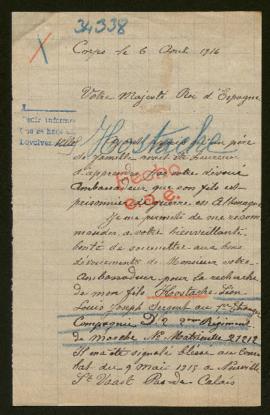 34338
Corps le 6 Août 1916
Votre Majesté Roi d'Espagne
Hostache
père
de famille
d'apprendre par votre dévoué
Ambassadeur que son fils est
prisonnier de guerre en Allemagne
hecho
Je me permets de me recom
mander à votre bienveillante
bonté de soumettre aux bons
dévouements de Monsieur votre
Ambassadeur pour la recherche
de mon fils Hostache Léon
Louis Joseph Sergent au 1er Etranger
Compagnie D 2 2me Régiment
de marche No Matricule 27212
Il m'a été signalé blessé au Com
bat du 9 Mai 1915 à Neuville
St Vaast Pas-de-Calais